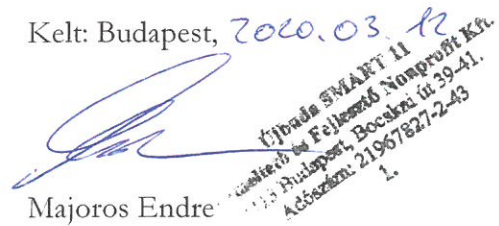 Kelt: Budapest, 2020.03.12
Újbuda SMART 11
és Fejlesztő Nonprofit Kft.
Budapest, Bocskai út 39-41.
Adószám: 21967827-2-43
1.
Majoros Endre